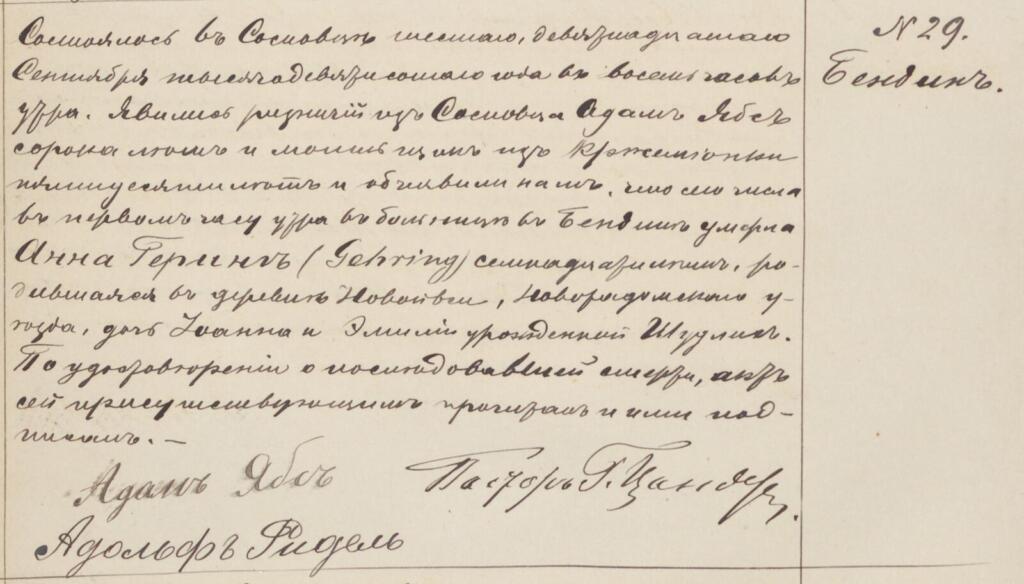 Состоялось въ Сосновцѣ шестаго, девятнадцатаго
Сентября тысяча девятисотаго года въ восемь часовъ
утра. Явились ризничій изъ Сосновца Адамъ Ябсъ
сорока лѣтъ и изъ
пятидесяти лѣтъ и объявили намъ, что сего числа
въ первомъ часу утра въ больницѣ въ Бендинѣ умерла
Анна Герингъ (Gehring) семнадцати лѣтъ, ро-
дившаяся въ деревнѣ Новорадомскаго у-
ѣзда, дочь Іоанна и Эмиліи урожденной
По удостовѣреніи о послѣдовавшей смерти, актъ
сей присутствующимъ прочитанъ и ими под-
писанъ. –
Адамъ Ябсъ
Пасторъ Г. Цандеръ.
Адольфъ Ридель
N 29.
Бендинъ.